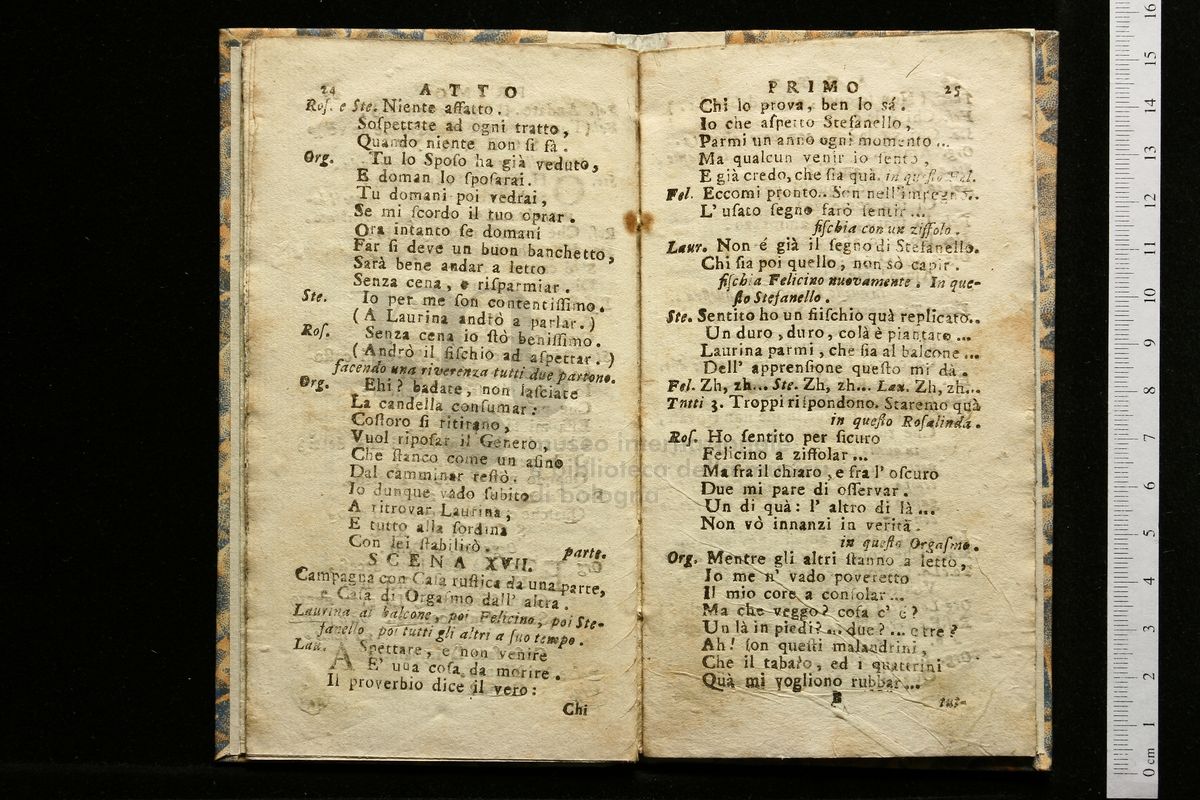 24 ATTO
Ros. e Ste. Niente affatto.
Sospettate ad ogni tratto,
Quando niente non si sà.
Org. Tu lo Sposo ha già veduto,
E doman lo sposarai.
Tu domani poi vedrai,
Se mi scordo il tuo oprar.
Ora intanto se domani
Far si deve un buon banchetto,
Sarà bene andar a letto
Senza cena, e risparmiar.
Ste. Io per me son contentissimo.
(A Laurina andrò a parlar.)
Ros. Senza cena io stò benissimo.
(Andrò il fischio ad aspettar.)
facendo una riverenza tutti due partono.
Org. Ehi? badate, non lasciate
La candella consumar:
Costoro si ritirano,
Vuol riposar il Genero,
Che stanco come un asino
Dal camminar restò.
Io dunque vado subito
A ritrovar Laurina,
E tutto alla sordina
Con lei stabilirò. parte.
SCENA XVII.
Campagna con Casa rustica da una parte,
e Casa di Orgasmo dall' altra.
Laurina al balcone, poi Felicino, poi Ste-
fanello, poi tutti gli altri a suo tempo.
Lau. ASpettare, e non venire
E' una cosa da morire.
Il proverbio dice il vero:
Chi
PRIMO 25
Chi lo prova, ben lo sá.
Io che aspetto Stefanello,
Parmi un anno ogni momento...
Ma qualcun venir io sento,
E già credo, che sia quà. in questo Fel.
Fel. Eccomi pronto.. Son nell'impegno..
L' usato segno farò sentir...
fischia con un ziffolo.
Laur. Non é già il segno di Stefanello.
Chi sia poi quello, non sò capir.
fischia Felicino nuovamente. In que-
sto Stefanello.
Ste. Sentito ho un fiischio quà replicato..
Un duro, duro, colà è piantato...
Laurina parmi, che sia al balcone...
Dell' apprensione questo mi dà.
Fel. Zh, zh... Ste. Zh, zh... Lau. Zh, zh...
Tutti 3. Troppi rispondono. Staremo quà
in questo Rosalinda.
Ros. Ho sentito per sicuro
Felicino a ziffolar...
Ma fra il chiaro, e fra l' oscuro
Due mi pare di osservar.
Un di quà: l' altro di là...
Non vò innanzi in verità.
in questa Orgasmo.
Org. Mentre gli altri stanno a letto,
Io me n' vado poveretto
Il mio core a consolar...
Ma che veggo? cosa c' è?
Un là in piedi?... due?... e tre?
Ah! son questi malandrini,
Che il tabaro, ed i quattrini
Quà mi vogliono rubbar...
B
museo internazionale
e biblioteca de
di bologna
0 cm 1 2 3 4 5 6 7 8 9 10 11 12 13 14 15 16